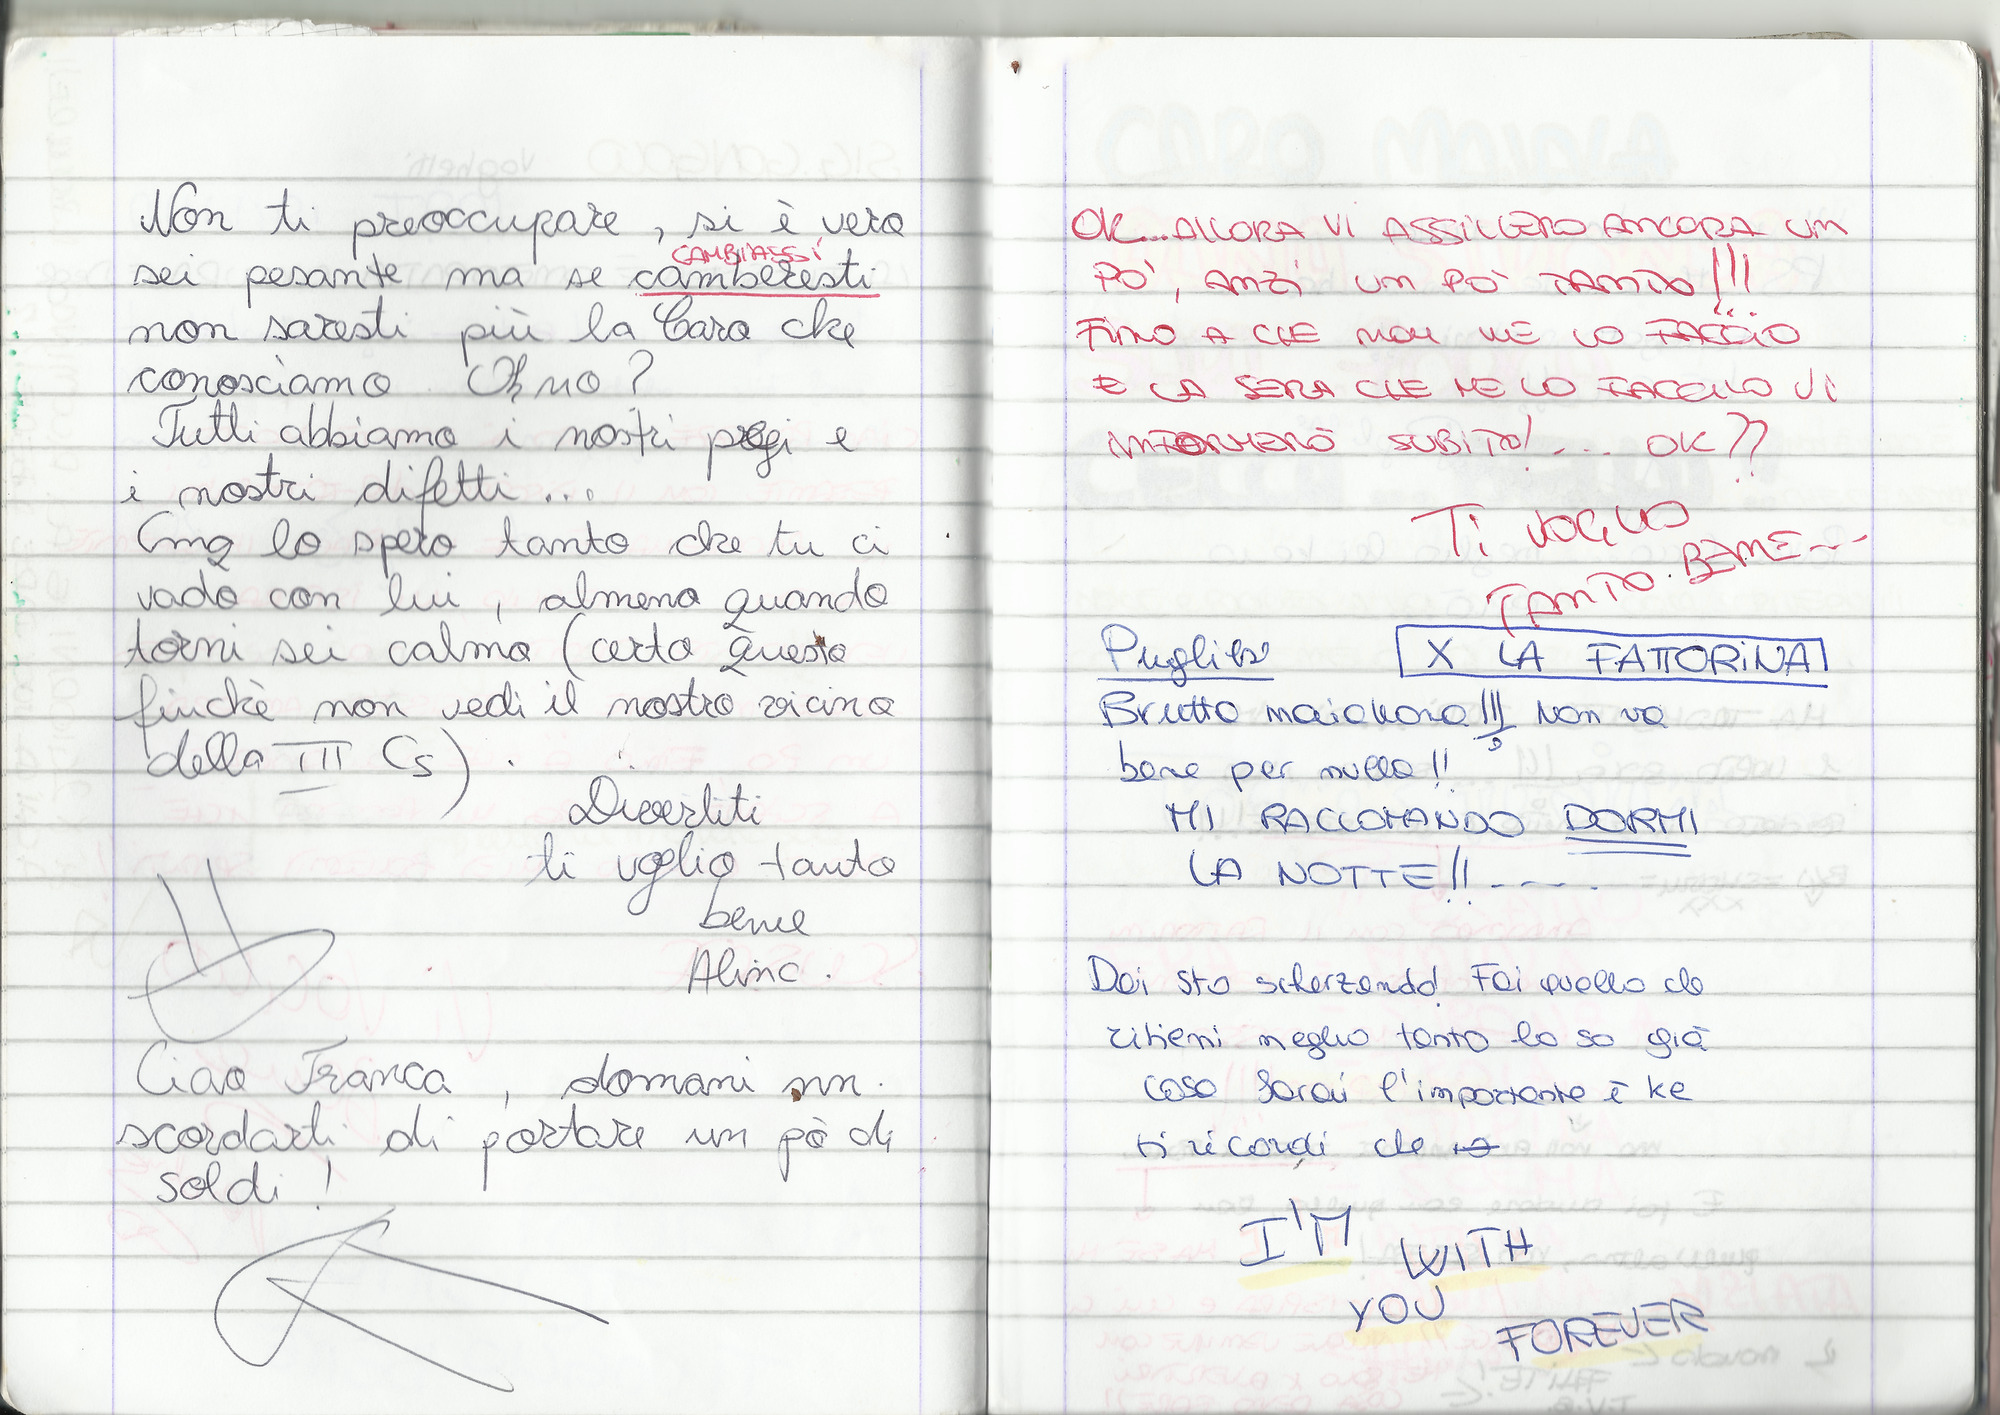 Non ti preoccupare, si è vero
CAMBIASSI
sei pesante ma se camberesti
non saresti più la Cara che
conosciamo Oh no?
Tutti abbiamo i nostri pregi e
i nostri difetti...
Cmq lo spero tanto che tu ci
vada con lui, almeno quando
torni sei calma (certo questo
finchè non vedi il nostro vicino
della III Cs).
Divertiti
ti voglio tanto
bene
Aline.
Ciao Franca, domani nn
scordarti di portare un pò di
soldi!
OK...ALLORA VI ASSILLERO ANCORA UM
PO', ANZI UM PO' TANTO!!!
FINO A CHE NON ME LO FACCIO
E LA SERA CHE ME LO FACCIO VI
INFORMERÒ SUBITO!.... OK??
Ti VOGLIO
TANTO BENE---
X LA FATTORINA
Brutto maialona!!! Non va
bene per nulla!!
MI RACCOMANDO DORMI
LA NOTTE!!-----
Dai sto scherzando! Fai quello che
ritieni meglio tanto lo so già
cosa farai l'importante è ke
ti ricordi che
I'M WITH
YOU
FOREVER